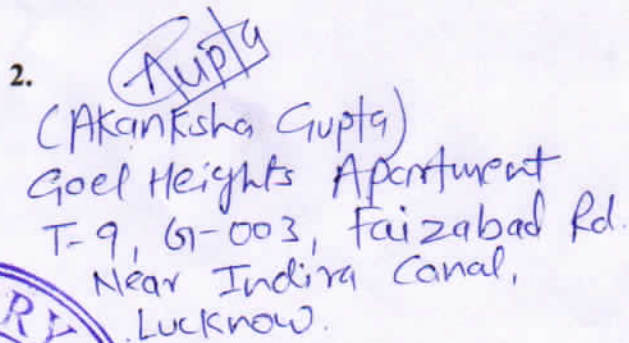 2.
Gupta
(Akanksha Gupta)
Goel Heights Apartment
T-9, G-003, Faizabad Rd.
Near Indira Canal,
Lucknow.
RY